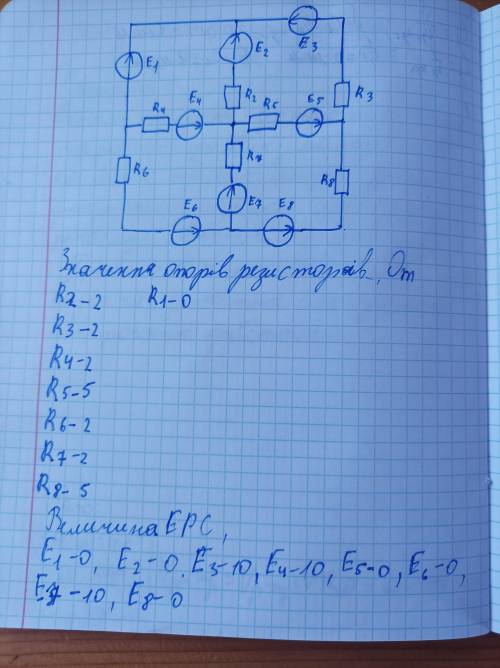 E1
E2
E3
R2
R3
R4
E4
R5
E5
R6
R7
R8
E6
E7
E8
Значення опорів резисторів, Ом
R2-2 R1-0
R3-2
R4-2
R5-5
R6-2
R7-2
R8-5
Величина ЕРС,
E1-0, E2-0. E3-10, E4-10, E5-0, E6-0,
E7-10, E8-0